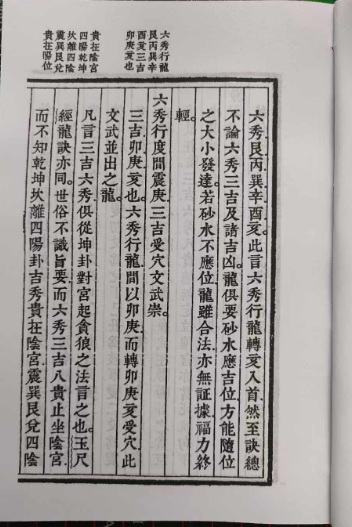 六秀行龍
艮丙巽辛
酉亥三吉
卯庚亥也
貴在陰宮
四陽乾坤
坎離四陰
震巽艮兌
貴在陽位
六秀。艮丙巽辛酉亥。此言六秀行龍轉亥入首。然至訣總
不論六秀三吉及諸吉凶。龍俱要砂水應吉位。方能隨位
之大小發達。若砂水不應位。龍雖合法。亦無証據。福力終
輕。
六秀行度間震庚。三吉受穴文武崇。
三吉卯庚亥也。六秀行龍間以卯庚。而轉卯庚亥受穴。此
文武並出之龍。
凡言三吉六秀。俱從坤卦對宮起貪狼之法言之也。玉尺
經龍訣亦同。世俗不識旨要。而六秀三吉八貴止坐陰宮。
而不知乾坤坎離四陽卦。吉秀貴在陰宮。震巽艮兌四陰